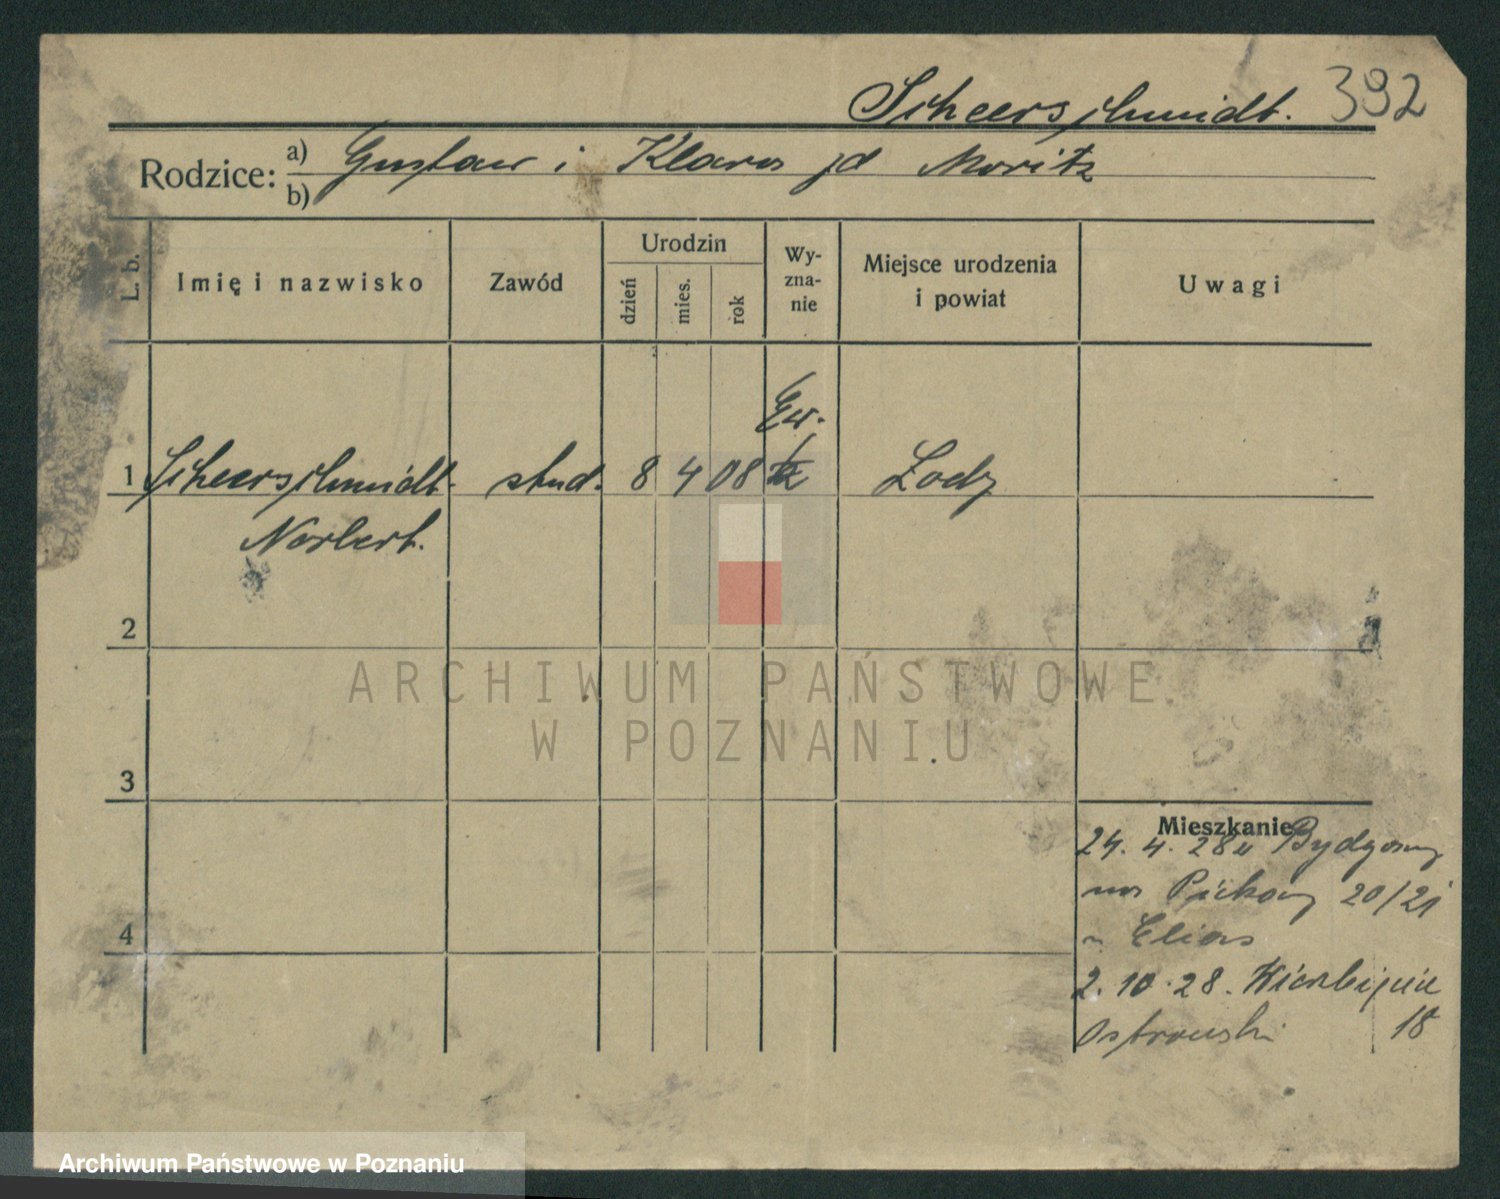 Scheerschmidt. 392
Rodzice: a) Gustaw i Klara zd Moritz
b)
L. b.
Imię i nazwisko
Zawód
Urodzin
dzień
mies.
rok
Wy-
zna-
nie
Miejsce urodzenia
i powiat
Uwagi
Ew.
1 Scheerschmidt stud. 8 4 08 Lodz
Norbert.
2
ARCHIWUM PAŃSTWOWE
W POZNANIU
3
Mieszkanie
24. 4. 28 Bydgoszcz
Piekary 20/21
Elias
2. 10. 28. Wierzbięcic
Ostrowski 18
4
Archiwum Państwowe w Poznaniu